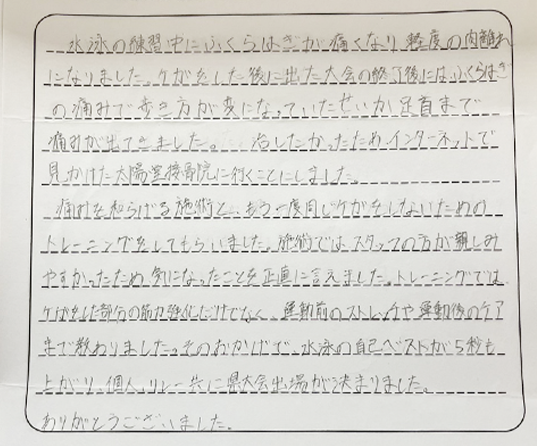 水泳の練習中にふくらはぎが痛くなり軽度の肉離れ
になりました。ケガをした後に出た大会の終了後にはふくらはぎ
の痛みで歩き方が変になっていたせいか足首まで
痛みが出てきました。治したかったためインターネットで
見かけた太陽堂接骨院に行くことにしました。
痛みを和らげる施術と、もう一度同じケガをしないための
トレーニングをしてもらいました。施術では、スタッフの方が親しみ
やすかったため気になったことを正直に言えました。トレーニングでは
ケガをした部分の筋力強化だけでなく、運動前のストレッチや運動後のケア
まで教わりました。そのおかげで、水泳の自己ベストが5秒も
上がり、個人、リレー共に県大会出場が決まりました。
ありがとうございました。